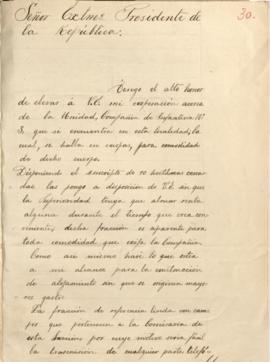 Señor Exmo Presidente de
la República.
30.
Tengo el alto honor
de elevar á V.E. mi cooperación acerca
de la Unidad, Compañia de Infantería Nº
3, que se encuentra en esta localidad; la
cual, se halla en carpas, para comodidad
de dicho cuerpo.
Disponiendo el suscripto de 50 hectáreas
las pongo a disposicion de V.E. sin que
la Superioridad tenga que abonar renta
alguna durante el tiempo que crea con-
veniente; dicha fraccion es aparente para
toda comodidad que exija la Compañia.
Como asi mismo haré lo que esté
a mi alcance para la
de alojamiento sin que se originen mayo-
res gastos.
La fraccion de referencia linda con cam-
pos que pertenecen a la Comisaria de
esta por cuyo motivo sera facil
la transmision de cualquier parte telefó-